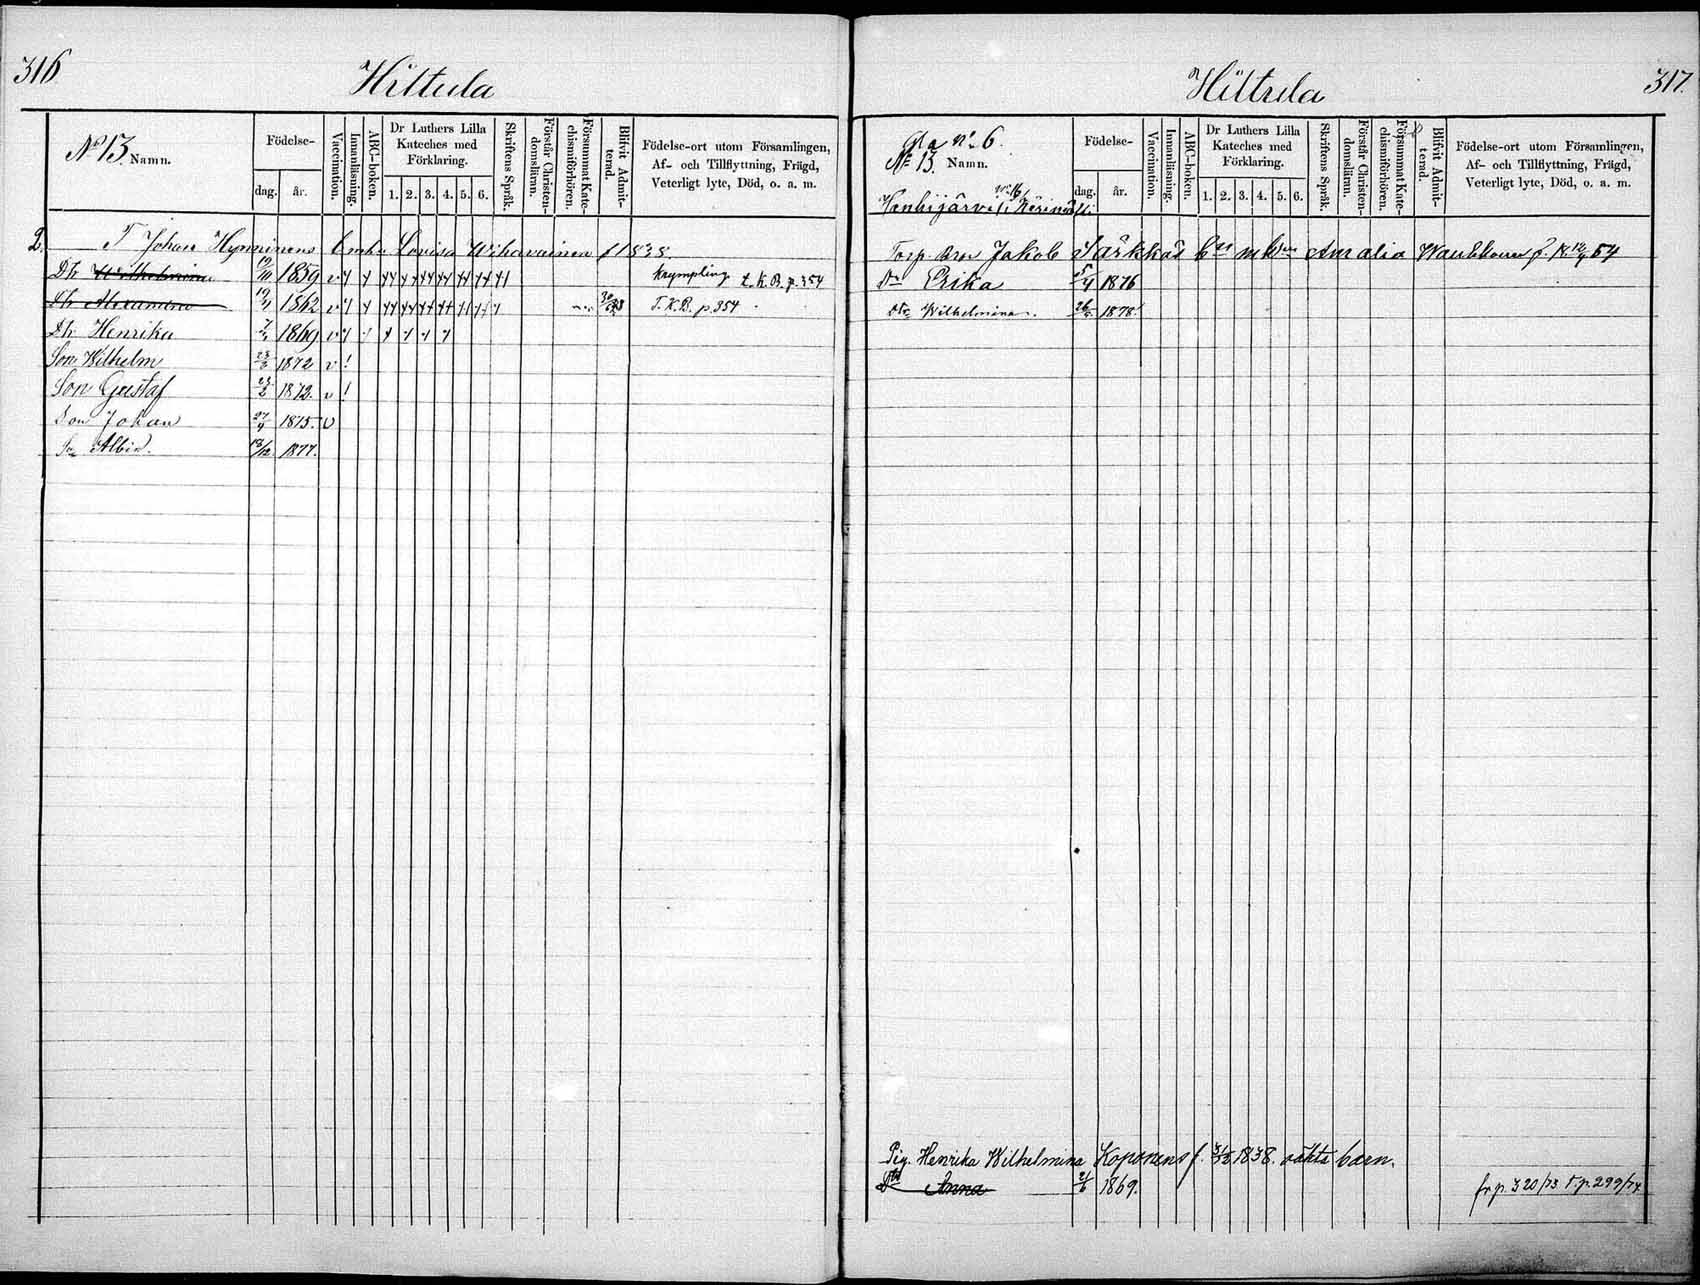 316
Hiltula
No 13. Namn.
Födelse-
dag. år.
Vaccination.
Innanläsning.
ABC-boken.
Dr Luthers Lilla Kateches med Förklaring.
1. 2. 3. 4. 5. 6.
Skriftens Språk.
Förstår Christendomsläran.
Försummat Katechismiförhören.
Blifvit Admitterad.
Födelse-ort utom Församlingen, Af- och Tillflyttning, Frägd, Veterligt lyte, Död, o. a. m.
2. T Johan Hynninens Enka Lovisa Wihavainen f 1838.
Dtr Wilhelmina 19/10 1859 v krympling t. K. B. p. 354
Dtr Alexandra 1862 v T. K. B. p. 354
Dtr Henrika 1869 v
Son Wilhelm 23/2 1872 v !
Son Gustaf 23/2 1872. v !
Son Johan 27/9 1875. v
Son Albin. 13/12 1877.
317.
Hiltula
Gla No 6.
No 13. Namn.
No 16
Födelse-
dag. år.
Vaccination.
Innanläsning.
ABC-boken.
Dr Luthers Lilla Kateches med Förklaring.
1. 2. 3. 4. 5. 6.
Skriftens Språk.
Förstår Christendomsläran.
Försummat Katechismiförhören.
Blifvit Admitterad.
Födelse-ort utom Församlingen, Af- och Tillflyttning, Frägd, Veterligt lyte, Död, o. a. m.
Torp. Bror Jakob Särkkäs Amalia f. 54
Dr Erika 25/4 1876
Dtr Wilhelmina. 1878.
Pig. Henrika Wilhelmina Koponens f. 3/12 1838. oäkta barn.
Dtr Anna 2/6 1869. fr p. 320/73 t. p. 299/74